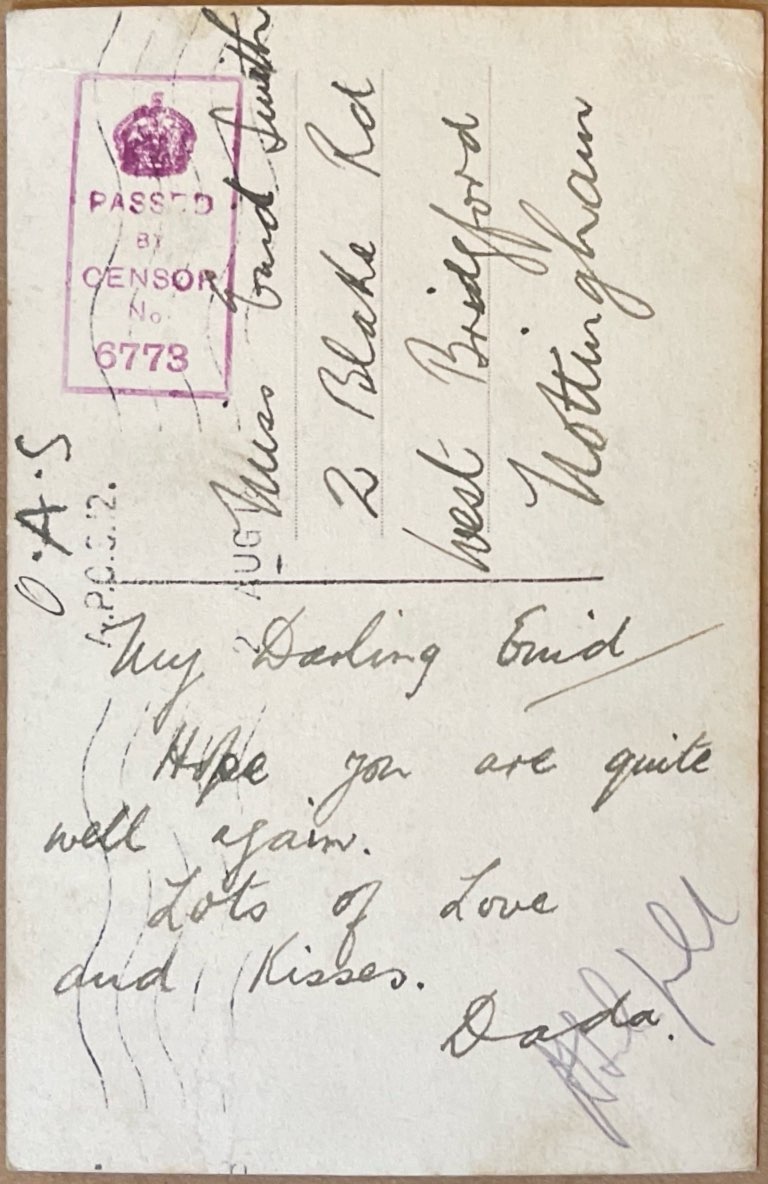 PASSED
BY
CENSOR
No
6773
O.A.S
A.P.O.S.12.
2 AUG
Miss Enid Smith
2 Blake Rd
West Bridgford
Nottingham
My Darling Enid
Hope you are quite
well again.
Lots of Love
and Kisses.
Dada.